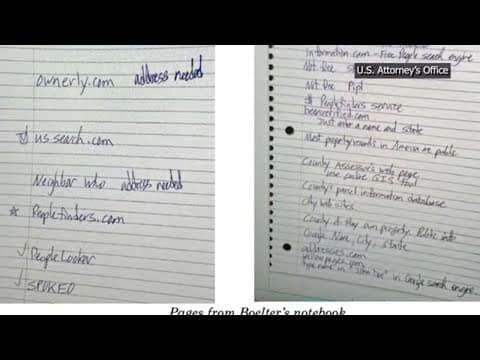 ownerly.com address needed
us search.com
Neighbor Who address needed
Peoplefinders.com
PeopleLooker
SPOKEO
information.com - Free People search engine
U.S. Attorney's Office
Not free
Not free Pipl
Peoplefinders service
beenverified.com
Just enter a name and state
Most property records in America are public
County Assessor's web page
use online GIS tool
County's parcel information database
city web sites
County & they own property. Public info
Google Name, City, state
addresses.com
yellowpages.com
type name in "John Doe" in Google search engine
Pages from Boelter's notebook